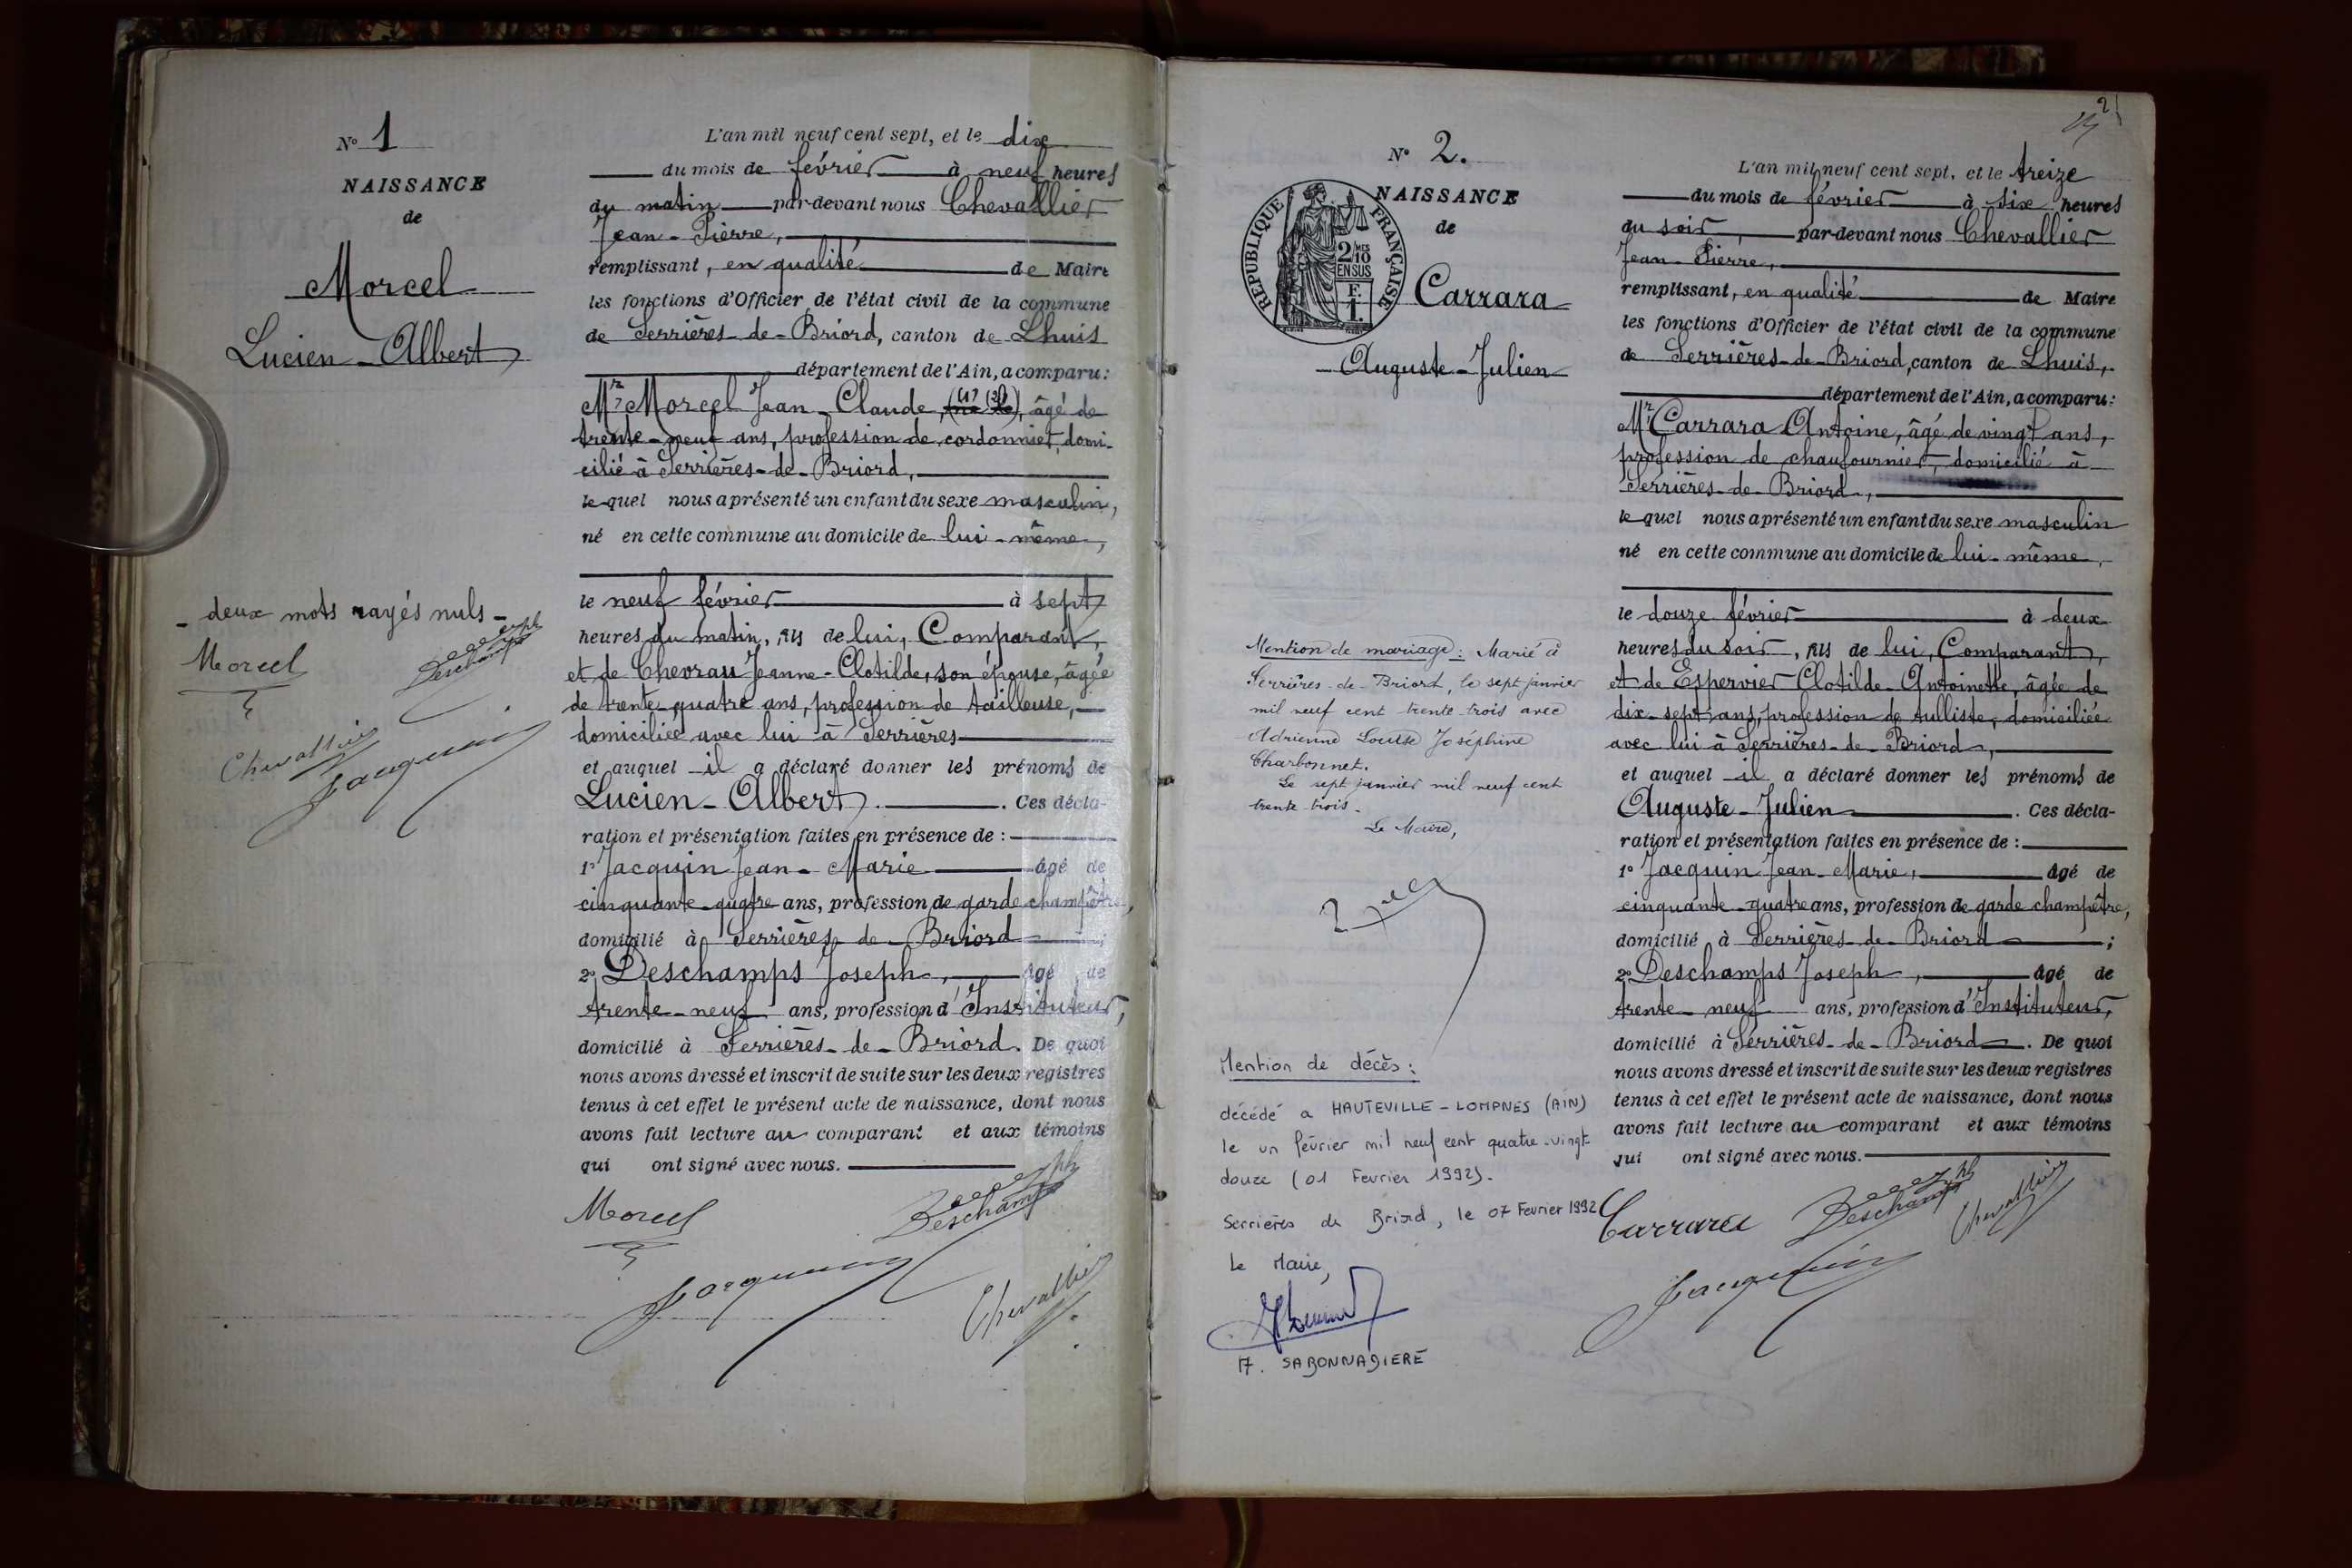 N° 1
NAISSANCE
de
Morcel
Lucien-Albert
- deux mots rayés nuls -
Morcel
Deschamps
Chevallier
Jacquin
L'an mil neuf cent sept, et le dix
du mois de février à neuf heures
du matin par-devant nous Chevallier
Jean-Pierre,
remplissant, en qualité de Maire
les fonctions d'Officier de l'état civil de la commune
de Serrières-de-Briord, canton de Lhuis
département de l'Ain, a comparu:
Mr Morcel Jean-Claude, (1) (2), âgé de
trente-neuf ans, profession de cordonnier, domi-
cilié à Serrières-de-Briord,
lequel nous a présenté un enfant du sexe masculin,
né en cette commune au domicile de lui-même,
le neuf février à sept
heures du matin, fils de lui, Comparant,
et de Chevrau Jeanne-Clotilde, son épouse, âgée
de trente-quatre ans, profession de tailleuse,
domiciliée avec lui à Serrières
et auquel il a déclaré donner les prénoms de
Lucien-Albert. Ces décla-
ration et présentation faites en présence de :
1° Jacquin Jean-Marie âgé de
cinquante-quatre ans, profession de garde champêtre,
domicilié à Serrières-de-Briord ;
2° Deschamps Joseph, âgé de
trente-neuf ans, profession d'Instituteur,
domicilié à Serrières-de-Briord. De quoi
nous avons dressé et inscrit de suite sur les deux registres
tenus à cet effet le présent acte de naissance, dont nous
avons fait lecture au comparant et aux témoins
qui ont signé avec nous.
Morcel
Deschamps
Jacquin
Chevallier
2
N° 2.
NAISSANCE
de
RÉPUBLIQUE FRANÇAISE
2/10
EN SUS
F.
1.
Carrara
Auguste-Julien
Mention de mariage: Marié à
Serrières-de-Briord, le sept janvier
mil neuf cent trente-trois avec
Adrienne Louise Joséphine
Charbonnet.
Le sept janvier mil neuf cent
trente-trois-
Le Maire,
Mention de décès:
décédé a HAUTEVILLE-LOMPNES (AIN)
le un février mil neuf cent quatre-vingt-
douze (01 Fevrier 1992).
Serrières de Briord, le 07 Fevrier 1992
Le Maire,
M. SABONNADIERE
L'an mil neuf cent sept, et le treize
du mois de février à six heures
du soir, par-devant nous Chevallier
Jean-Pierre,
remplissant, en qualité de Maire
les fonctions d'Officier de l'état civil de la commune
de Serrières-de-Briord, canton de Lhuis,
département de l'Ain, a comparu:
Mr Carrara Antoine, âgé de vingt ans,
profession de chaufournier, domicilié à
Serrières-de-Briord,
lequel nous a présenté un enfant du sexe masculin
né en cette commune au domicile de lui-même,
le douze février à deux
heures du soir, fils de lui, Comparant,
et de Espervier Clotilde-Antoinette, âgée de
dix-sept ans, profession de tulliste, domiciliée
avec lui à Serrières-de-Briord,
et auquel il a déclaré donner les prénoms de
Auguste-Julien. Ces décla-
ration et présentation faites en présence de :
1° Jacquin Jean-Marie, âgé de
cinquante-quatre ans, profession de garde champêtre,
domicilié à Serrières-de-Briord ;
2° Deschamps Joseph, âgé de
trente-neuf ans, profession d'Instituteur,
domicilié à Serrières-de-Briord. De quoi
nous avons dressé et inscrit de suite sur les deux registres
tenus à cet effet le présent acte de naissance, dont nous
avons fait lecture au comparant et aux témoins
qui ont signé avec nous.
Carrara
Deschamps
Chevallier
Jacquin